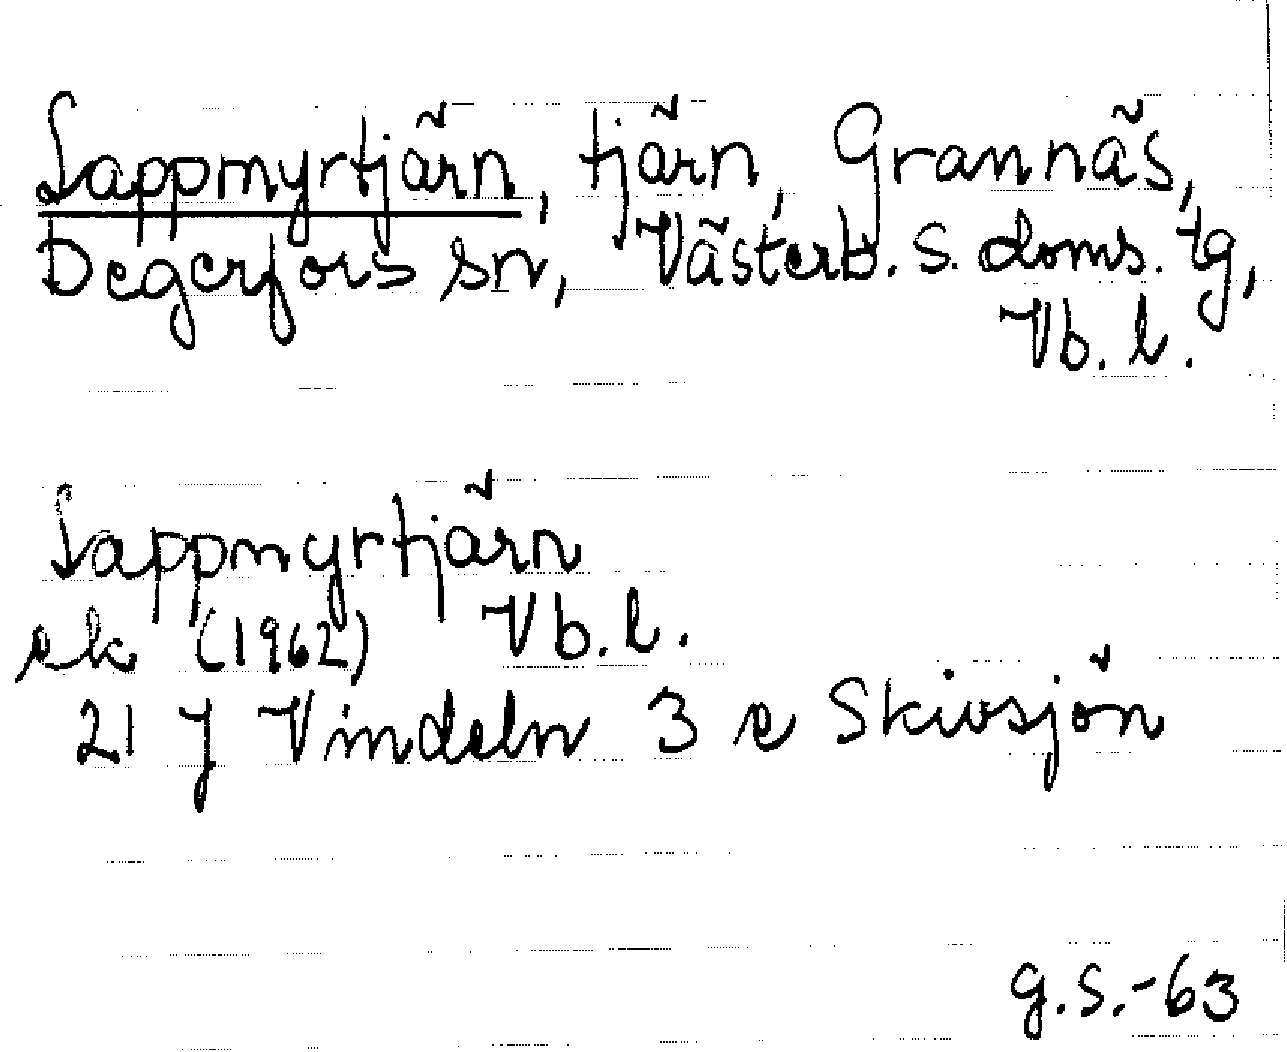 Lappmyrtjärn, tjärn, Grannäs,
Degerfors sn, Västerb. s. doms. tg,
Vb. l.
Lappmyrtjärn
ek (1962) Vb. l.
21 J Vindeln 3 e Skivsjön
g.S.-63